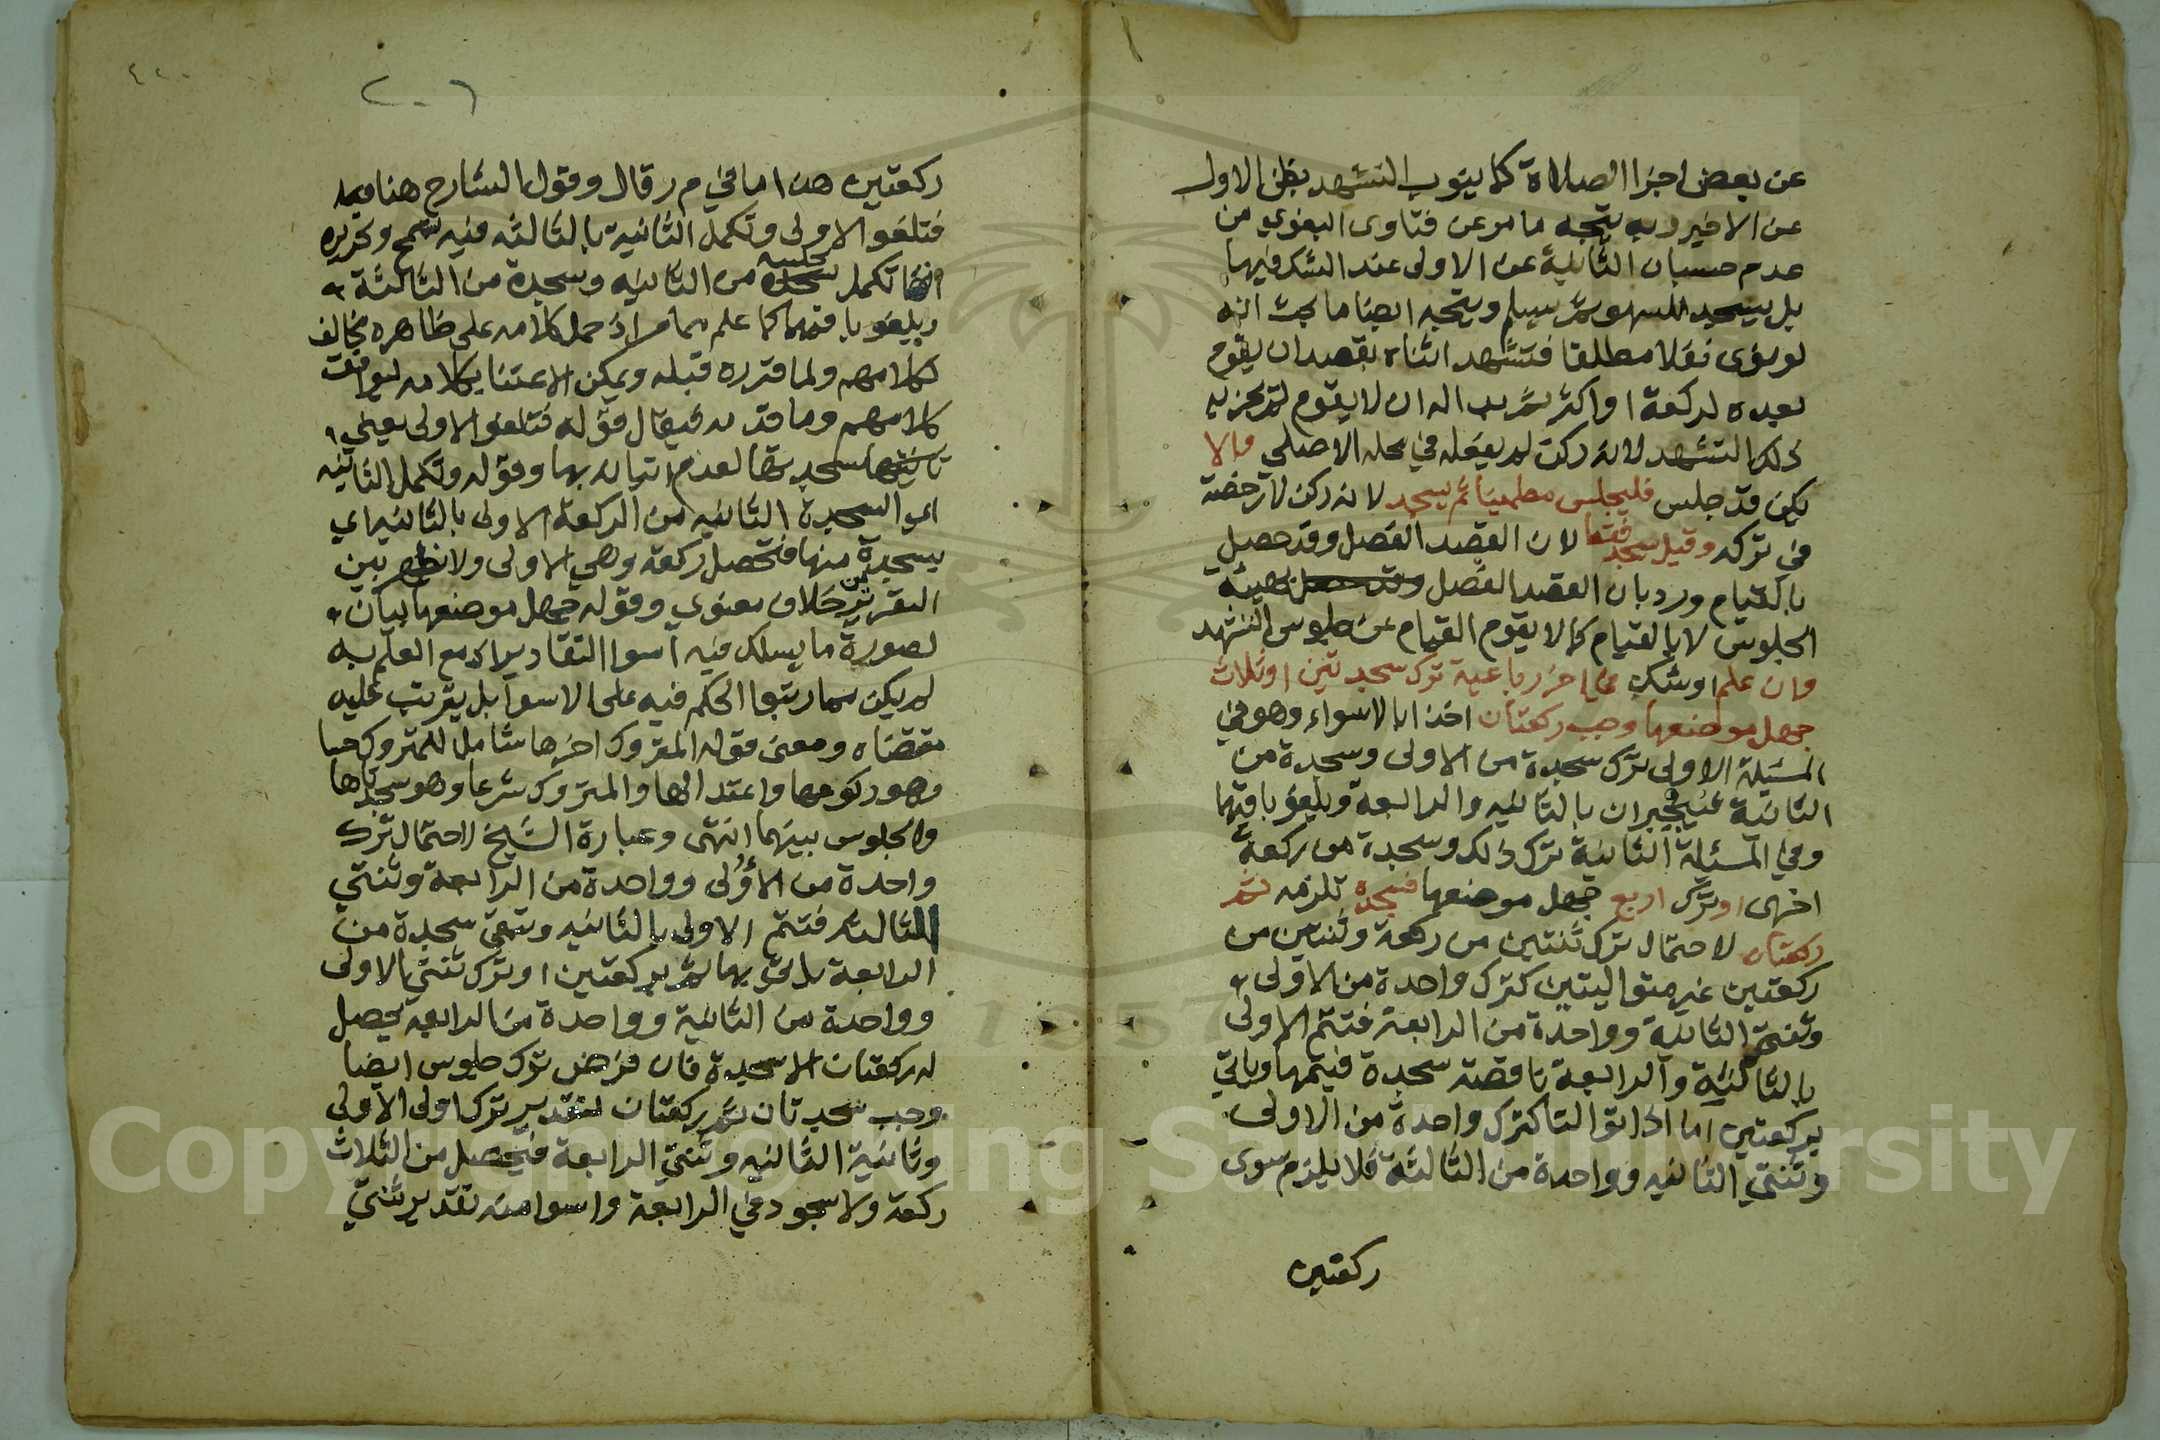 عن بعض اجزا الصلاة كما ينوب التشهد بظن الاول
عن الاخير وبه يتجه ما مر عن فتاوى البغوي من
عدم حسبان الثانية عن الاولى عند الشك فيها
بل يسجد للسهو ثم يسلم ويتجه ايضا ما بحث انه
لو نوى نفلا مطلقا فتشهد اثناه بقصد ان يقوم
بعده لركعة او اكثر ثم بدا له ان لا يقوم لم يجزيه
ذلك التشهد لانه ركن لم يفعله في محله الاصلي والا
يكن قد جلس فليجلس مطمينا ثم يسجد لانه ركن لا رخصة
في تركه وقيل يسجد فقط لان القصد الفصل وقد حصل
بالقيام ورد بان القصد الفصل وقد حصل بهيئة
الجلوس لا بالقيام كما لا يقوم القيام عن جلوس التشهد
وان علم او شك في اخر رباعية ترك سجدتين او ثلاث
جهل موضعها وجب ركعتان اخذا بالاسواء وهو في
المسئلة الاولى ترك سجدة من الاولى وسجدة من
الثالثة فيجبران بالثانيه والرابعة ويلغو باقيهما
وفي المسئلة الثانية ترك ذلك وسجدة من ركعة
اخرى او ترك اربع جهل موضعها فسجدة تلزمه ثم
ركعتان لاحتمال ترك ثنتين من ركعة وثنتين من
ركعتين غير متواليتين كترك واحدة من الاولى
وثنتي الثانية وواحدة من الرابعة فتتم الاولى
بالثالثة والرابعة ناقصة سجدة فيتمها وياتي
بركعتين اما اذا توالتا كترك واحدة من الاولى
وثنتي الثانيه وواحدة من الثالثة فلا يلزم سوى
ركعتين
٢٠٦
ركعتين هذا ما في م ر قال وقول الشارح هنا
فتلغو الاولى وتكمل الثانية بالثالثه فيه تسمح وتحريره
انها تكمل بجلسة من الثانيه وسجدة من الثالثة
ويلغو باقيهما كما علم مما مر اذ حمل كلامه على ظاهره مخالف
لكلامهم ولما قرره قبله ويمكن الاعتنا بكلامه ليوافق
كلامهم وما قدمه فيقال قوله فتلغو الاولى يعني
سجدتها لعدم اتيانه بها وقوله وتكمل الثانيه
اي السجدة الثانيه من الركعة الاولى بالثانيه اي
بسجدة منها فتحصل ركعة وهي الاولى ولا نظهر بين
التقريرين خلاف معنوي وقوله جهل موضعها بيان
لصورة ما يسلك فيه اسوا التقادير اذ مع العلم به
لم يكن مما رتبوا الحكم فيه على الاسوا بل يترتب عليه
مقتضاه ومعنى قوله المتروك اخرها شامل للمتروك حسا
وهو ركوعها واعتدالها والمتروك شرعا وهو سجدتاها
والجلوس بينهما انتهى وعبارة الشيخ لاحتمال ترك
واحدة من الاولى وواحدة من الرابعة وثنتي
الثالثه فتتم الاولى بالثانيه وتبقى سجدة من
الرابعة ياتي بها ثم بركعتين او ترك ثنتي الاولى
وواحدة من الثانية وواحدة من الرابعه يحصل
له ركعتان الا سجدة فان فرض ترك جلوس ايضا
وجب سجدتان ثم ركعتان لتقدير ترك اولى الاولى
وثانية الثانيه وثنتي الرابعة فيحصل من الثلاث
ركعة ولا سجود في الرابعة واسوا منه تقدير ثنتي
Copyright © King Saud University
1957